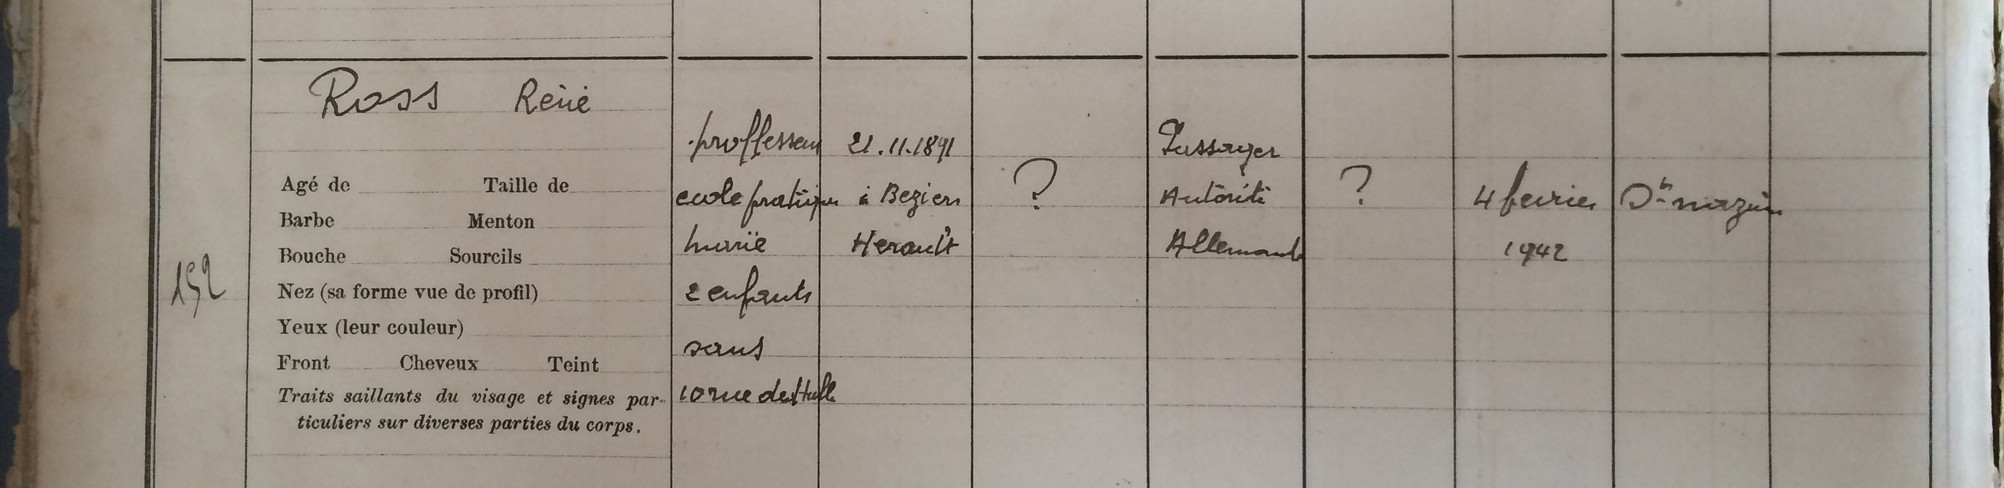 152
Ross René
Agé de Taille de
Barbe Menton
Bouche Sourcils
Nez (sa forme vue de profil)
Yeux (leur couleur)
Front Cheveux Teint
Traits saillants du visage et signes par-
ticuliers sur diverses parties du corps.
proffesseur
ecole pratique
marié
2 enfants
sans
10 rue des
21.11.1891
à Beziers
Herault
?
Passager
Autorité
Allemande
?
4 fevrier
1942